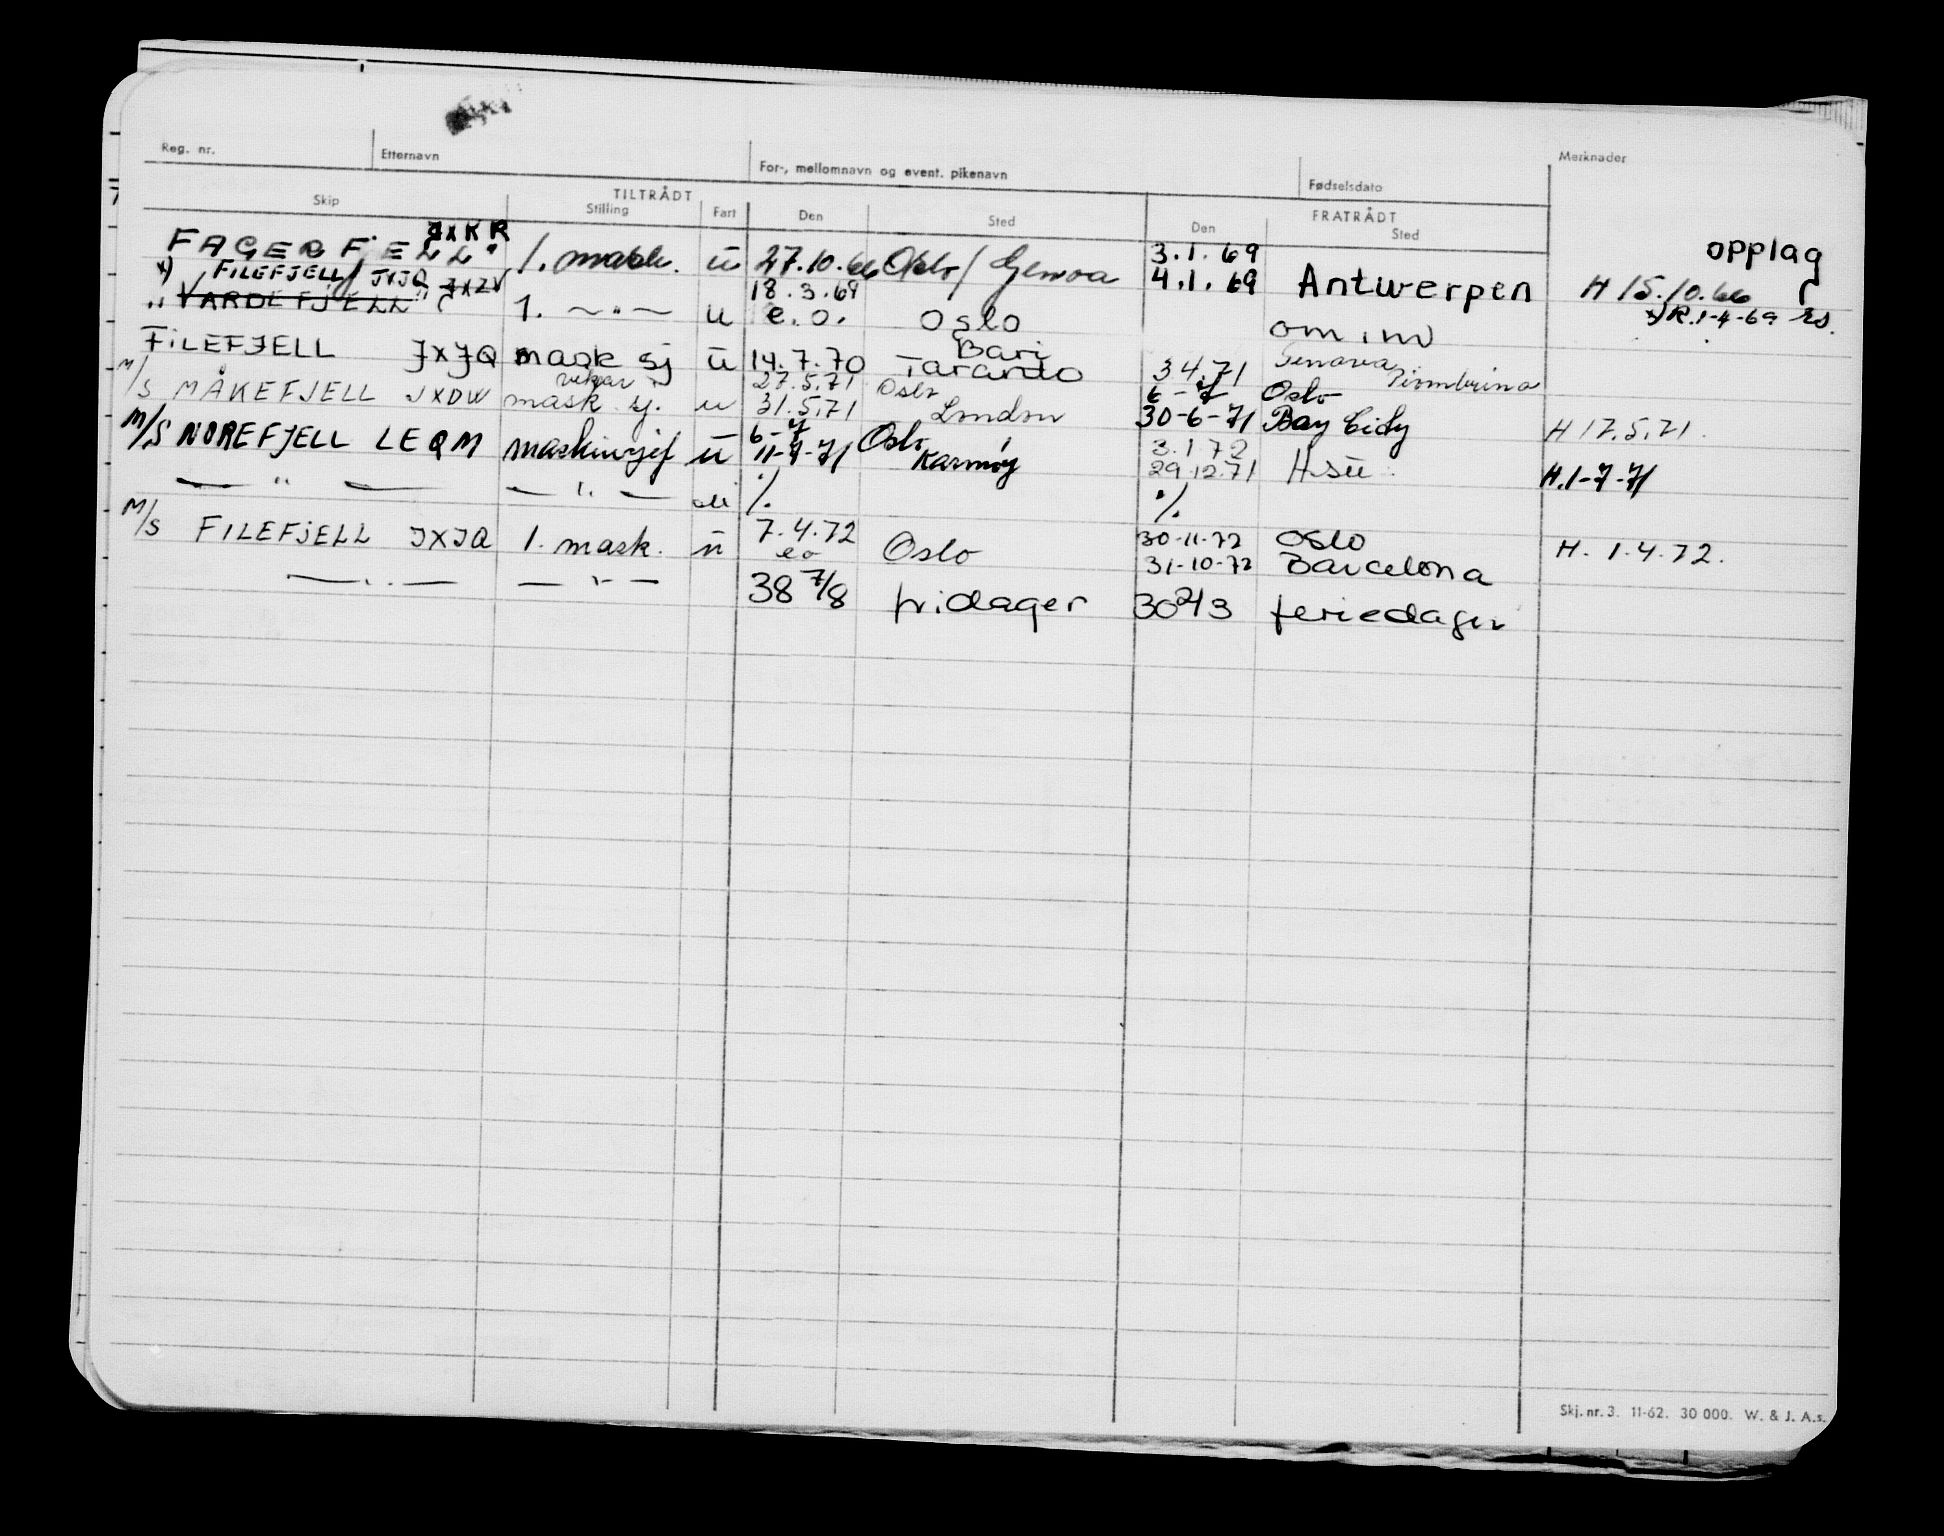 Reg. nr. Etternavn For-, mellomnavn og event. pikenavn Fødselsdato Merknader
TILTRÅDT FRATRÅDT
Skip Stilling Fart Den Sted Den Sted
FAGERFJELL" JXKR 1. mask. u 27.10.66 Oslo/Genoa 3.1.69 4.1.69 Antwerpen H 15.10.66 opplag
x) FILEFJELL/ JXJQ
"VARDEFJELL" JXZV 1. — " — u 18.3.69 e.o. Oslo om ind x) R.1-4-69 rs.
FILEFJELL JXJQ mask sj u 14.7.70 Bari Taranto 3.4.71 Genova Piombino
M/S MÅKEFJELL JXDW vikar mask. sj. u 27.5.71 31.5.71 Oslo London 6-7 30-6-71 Oslo Bay City H 17.5.71.
M/S NOREFJELL LEQM maskinsjef u 6-7 11-7-71 Oslo Karmøy 3.1.72 29.12.71 H.1-7-71
— " — — " — ./. ./.
M/S FILEFJELL JXJQ 1. mask. u 7.4.72 eo Oslo 30-11-72 31-10-72 Oslo Barcelona H. 1.4.72.
— " — — " — 38 7/8 fridager 30 2/3 feriedager
Skj. nr. 3. 11-62. 30 000. W. & J. A.s.